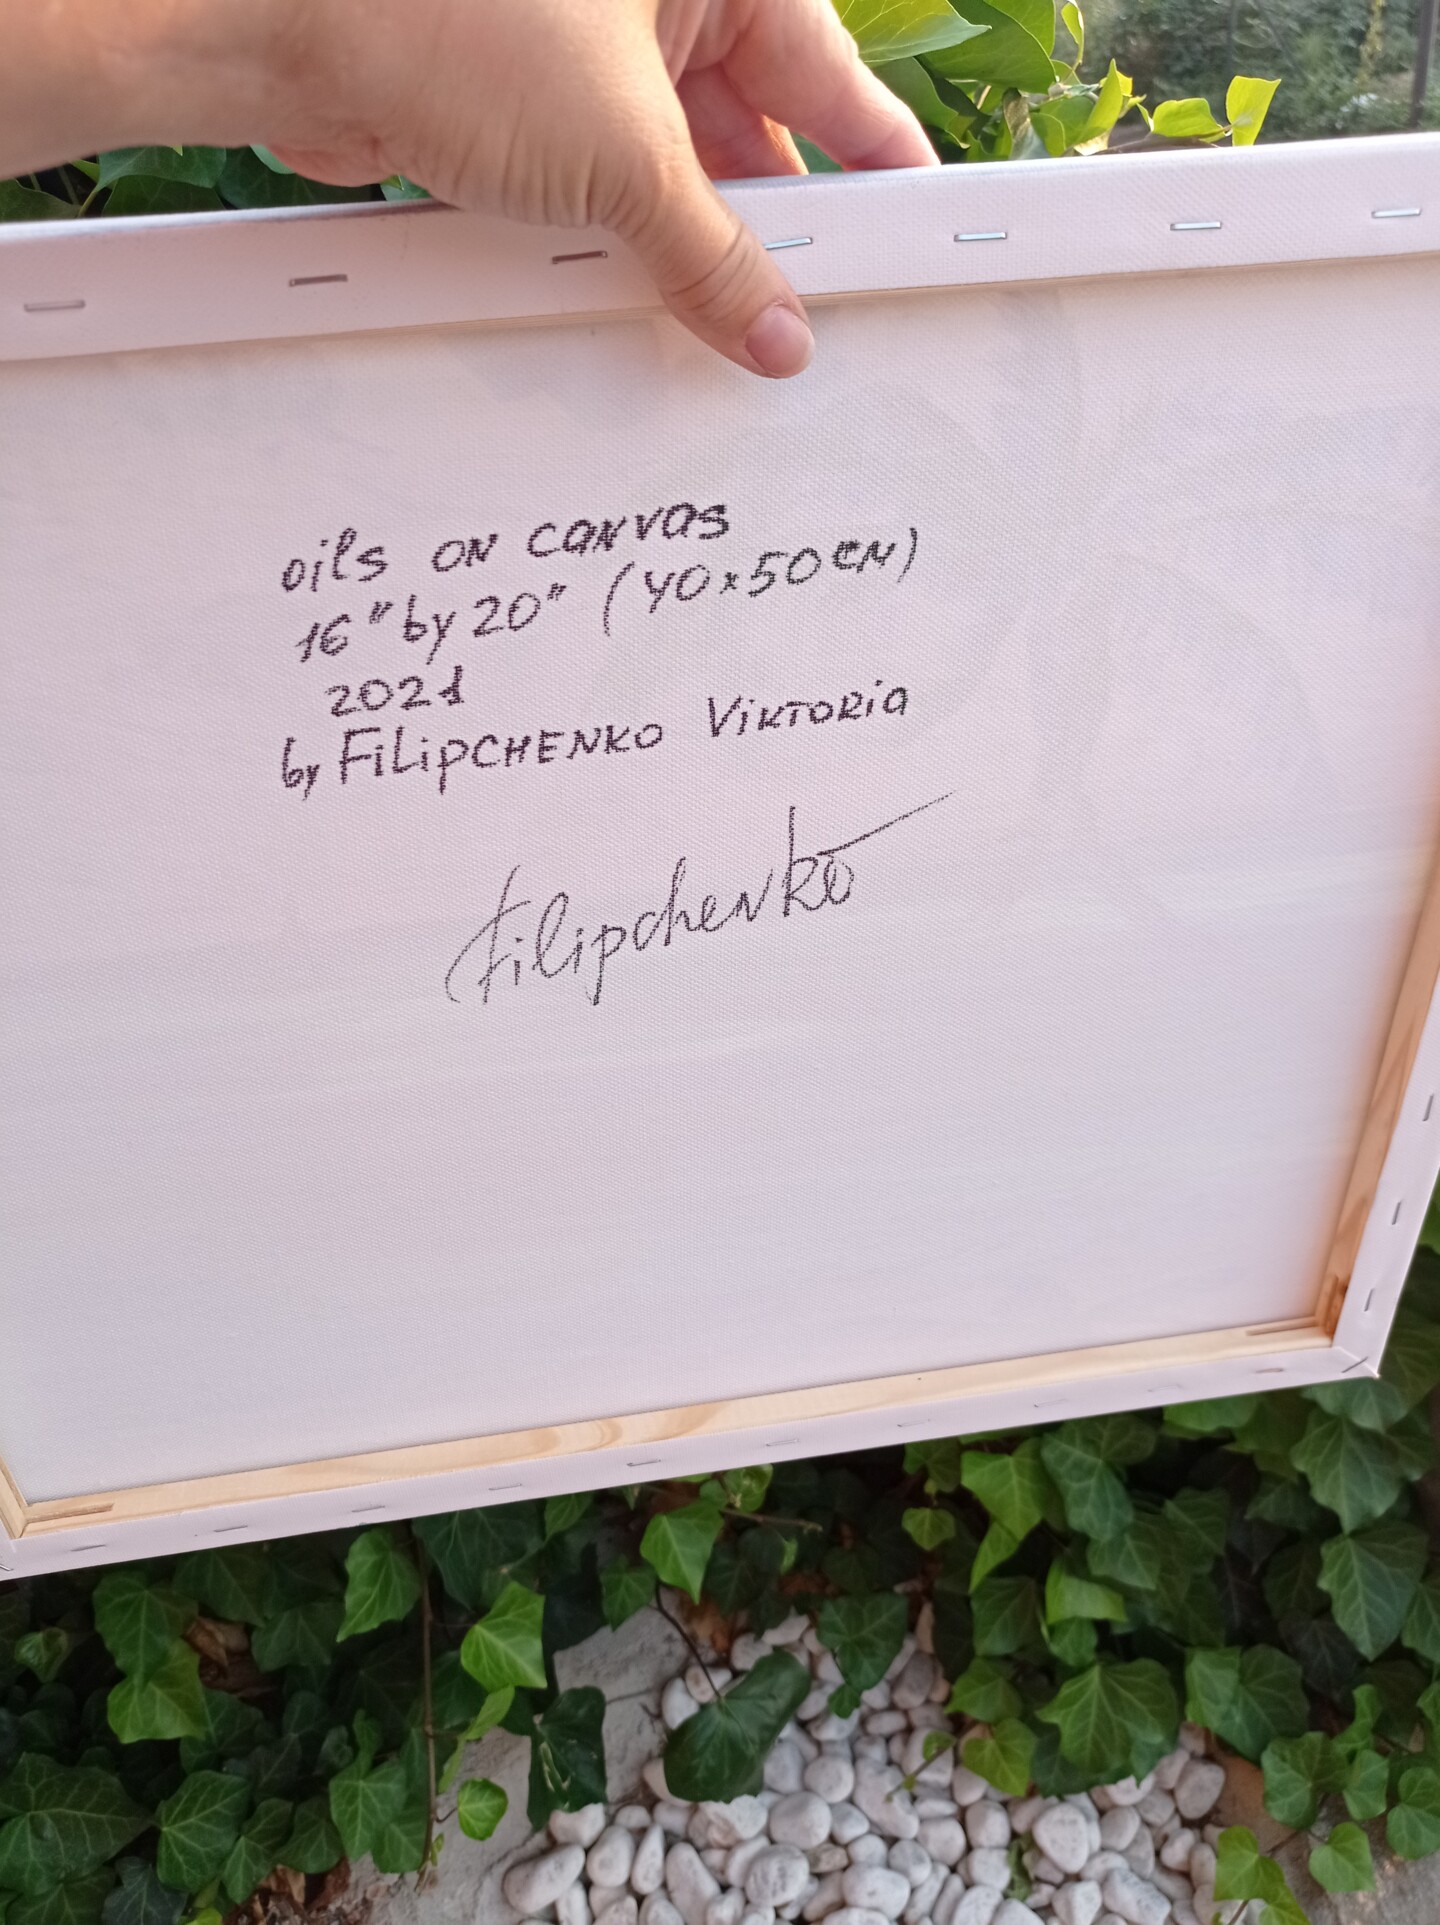 oils on canvas
16" by 20" (40x50см)
2021
by FiLipCHENKO ViKTORia
Filipchenko